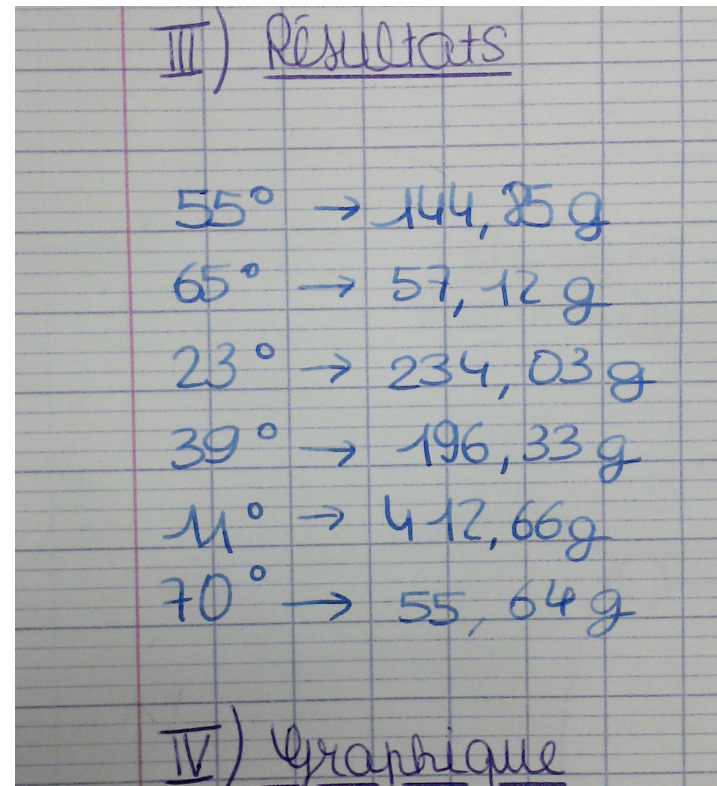 III) Résultats
55° → 144,85 g
65° → 57,12 g
23° → 234,03 g
39° → 196,33 g
11° → 412,66g
70° → 55,64 g
IV) Graphique